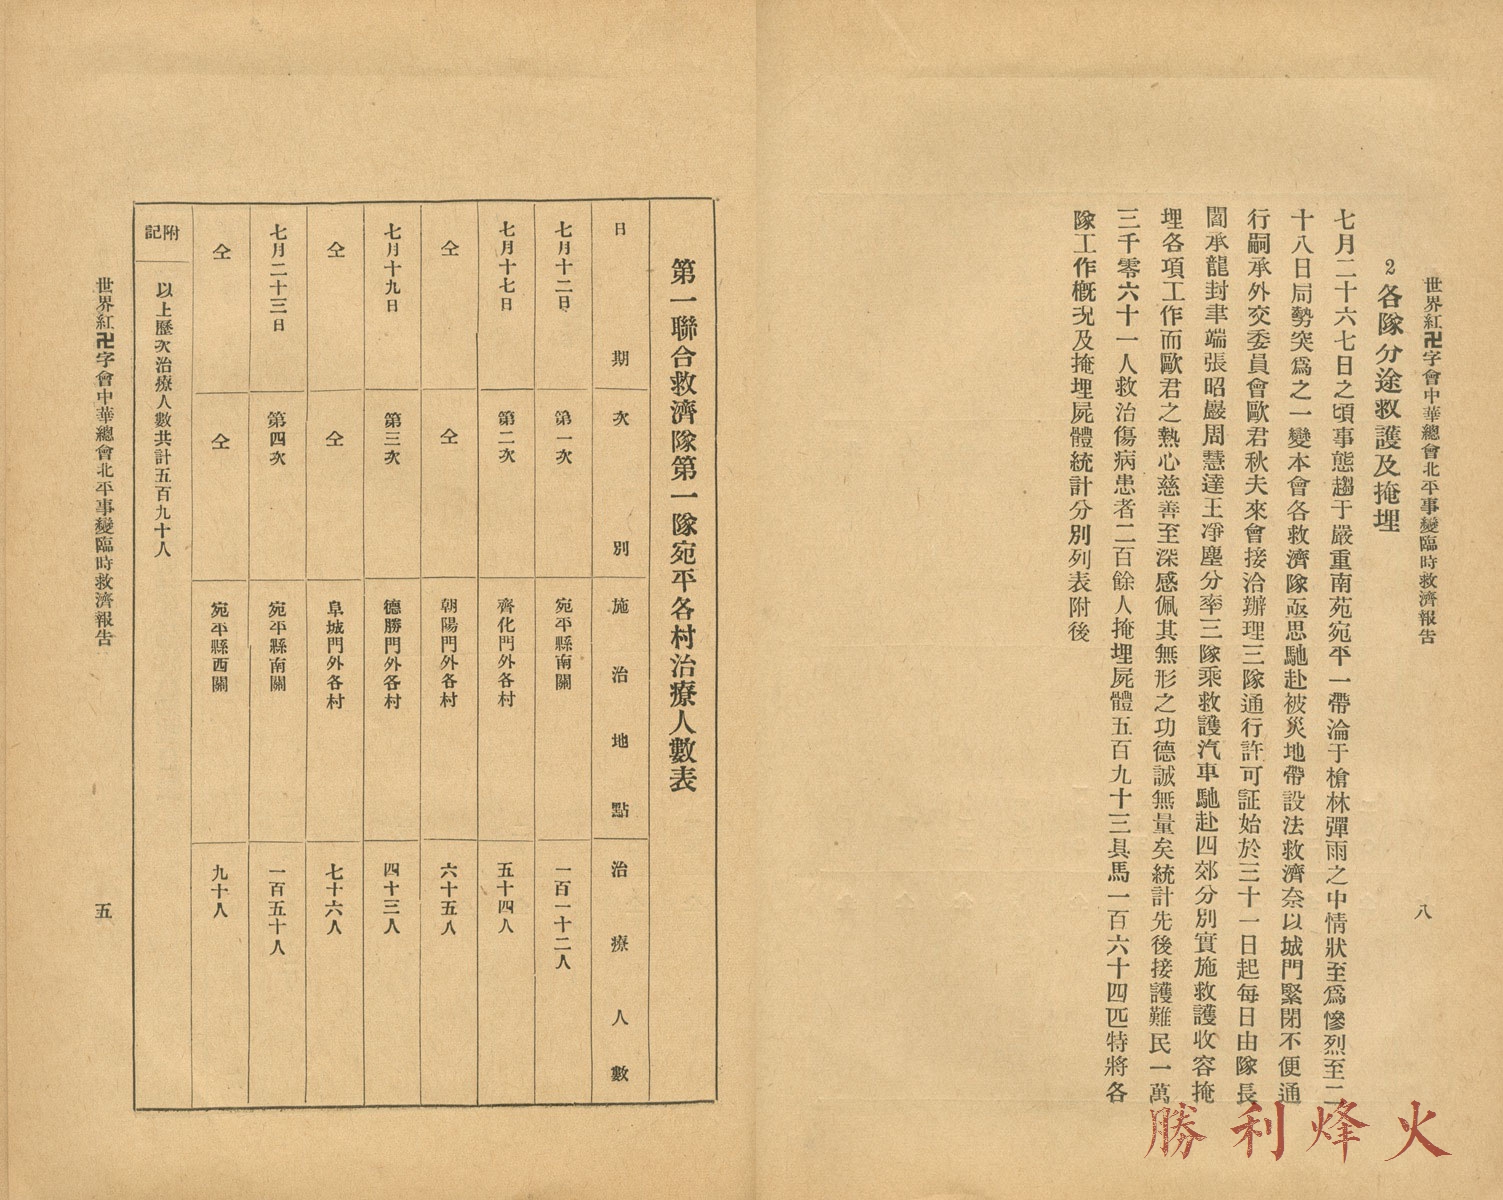 世界紅卍字會中華總會北平事變臨時救濟報告
八
2各隊分途救護及掩埋
七月二十六七日之頃事態趨于嚴重南苑宛平一帶淪于槍林彈雨之中情狀至爲慘烈至二
十八日局勢突爲之一變本會各救濟隊亟思馳赴被災地帶設法救濟奈以城門緊閉不便通
行嗣承外交委員會歐君秋夫來會接洽辦理三隊通行許可証始於三十一日起每日由隊長
閻承龍封聿端張昭嚴周慧達王凈塵分率三隊乘救護汽車馳赴四郊分別實施救護收容掩
埋各項工作而歐君之熱心慈善至深感佩其無形之功德誠無量矣統計先後接護難民一萬
三千零六十一人救治傷病患者二百餘人掩埋屍體五百九十三具馬一百六十四匹特將各
隊工作概況及掩埋屍體統計分別列表附後
第一聯合救濟隊第一隊宛平各村治療人數表
日期 次別 施治地點 治療人數
七月十二日 第一次 宛平縣南關 一百一十二人
七月十七日 第二次 齊化門外各村 五十四人
仝 仝 朝陽門外各村 六十五人
七月十九日 第三次 德勝門外各村 四十三人
仝 仝 阜城門外各村 七十六人
七月二十三日 第四次 宛平縣南關 一百五十人
仝 仝 宛平縣西關 九十人
附記 以上歷次治療人數共計五百九十人
世界紅卍字會中華總會北平事變臨時救濟報告
五
勝利烽火